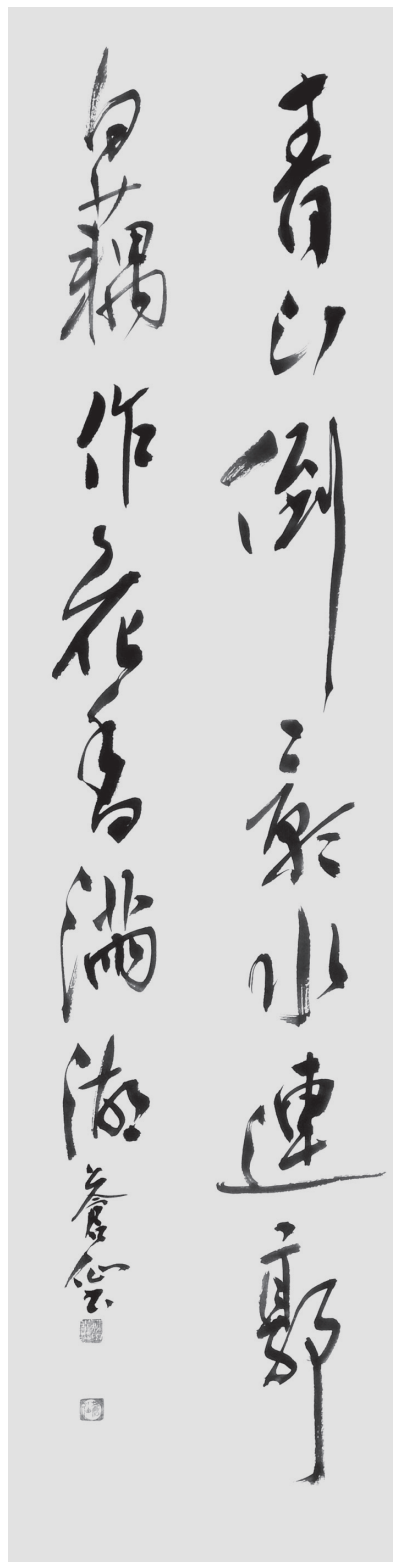 青山倒影水連郭
白藕作花香滿湖
蒼仙書